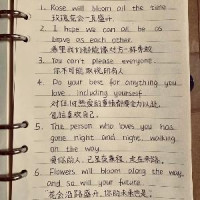 1. Rose will bloom all the time
玫瑰花会一直盛开
2. I hope we can all be as
brave as each other.
希望我们都能像对方一样勇敢
3. You can't please everyone
你不可能取悦所有人
4. Do your best for anything you
love including yourself
对任何热爱的事情都要全力以赴,
包括喜欢自己.
5. The person who loves you has
gone night and night, walking
on the way.
爱你的人,已星夜兼程,走在来路.
6. Flowers will bloom along the way,
and so will your future.
花会沿路盛开,你的未来也是.